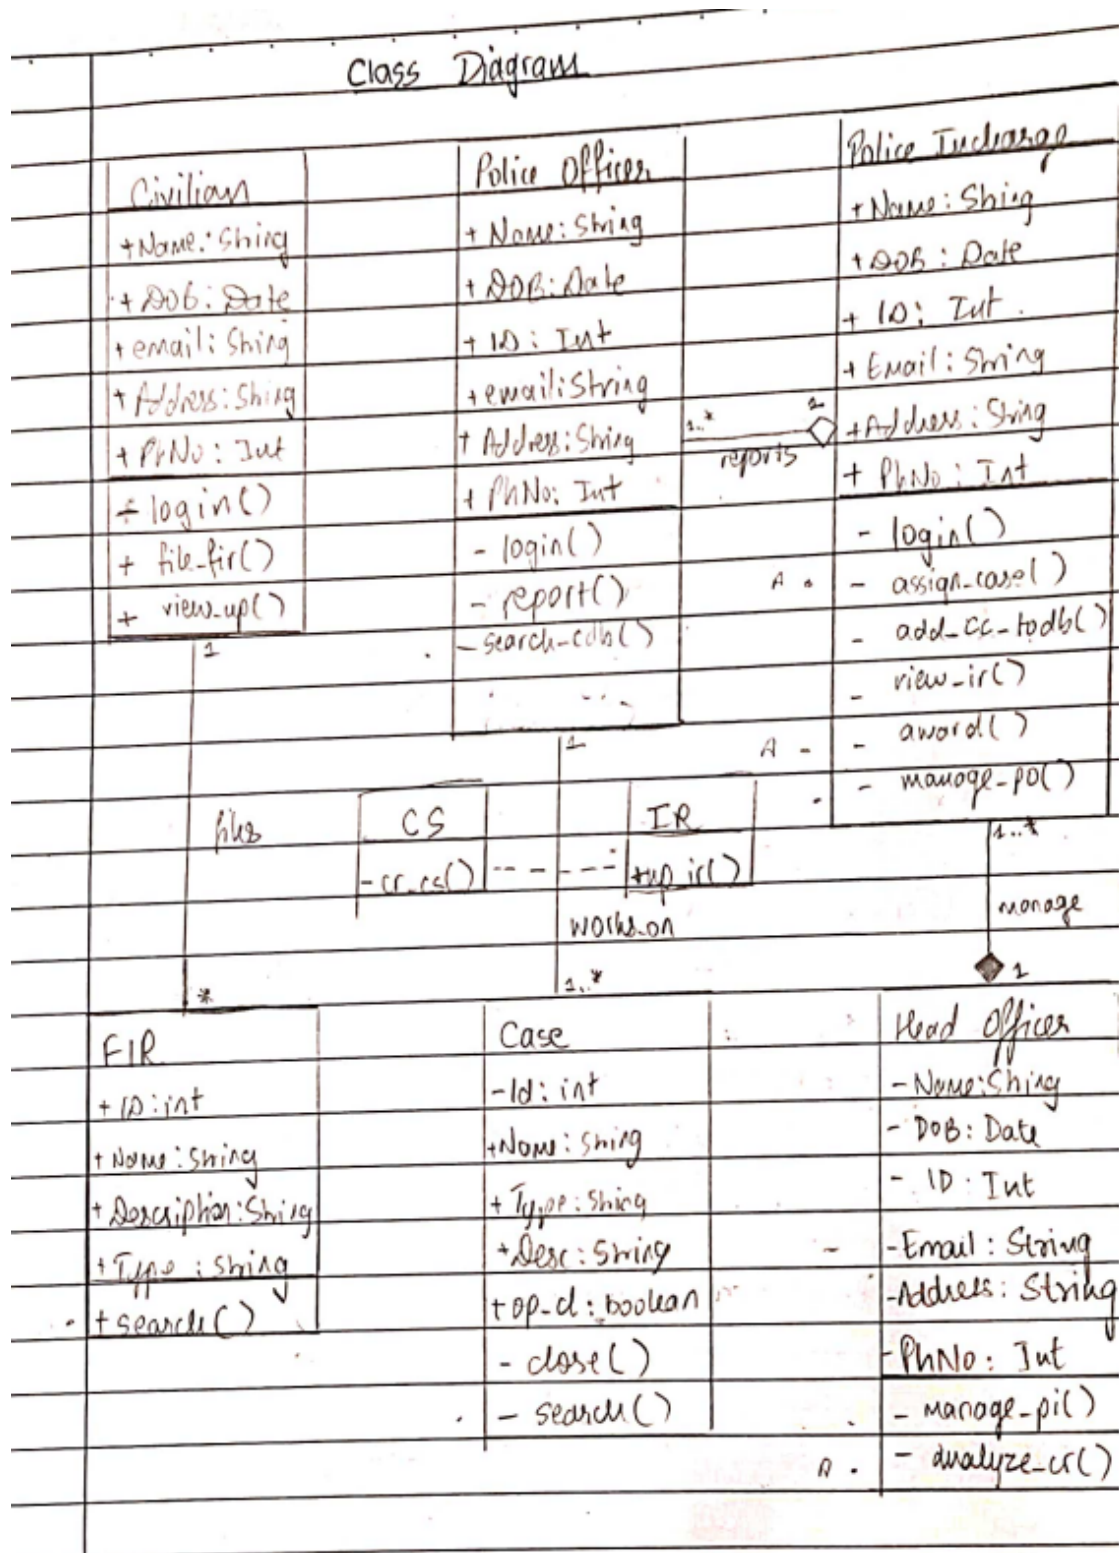 Class Diagram
Civilian
+Name: String
+ DOB: Date
+ email: String
+ Address: String
+ PhNo: Int
+ login()
+ file_fir()
+ view_up()
1
Police Officer
+ Name: String
+ DOB: Date
+ ID: Int
+ email: String
+ Address: String
+ PhNo: Int
- login()
- report()
- search_cdb()
1
1..*
reports
Police Incharge
+ Name: String
+ DOB: Date
+ ID: Int
+ Email: String
+ Address: String
+ PhNo: Int
- login()
A - assign_case()
- add_cc_todb()
- view_ir()
- award()
A - - manage_po()
1..*
files
CS
- cr_cs()
IR
+up_ir()
works_on
manage
*
1..*
1
FIR
+ ID: int
+ Name: String
+ Description: String
+ Type: String
+ search()
Case
- Id: int
+Name: String
+ Type: String
+ Desc: String
+ op_cl: boolean
- close()
- search()
Head Officer
- Name: String
- DOB: Date
- ID: Int
- Email: String
- Address: String
- PhNo: Int
- manage_pi()
A . - analyze_cr()